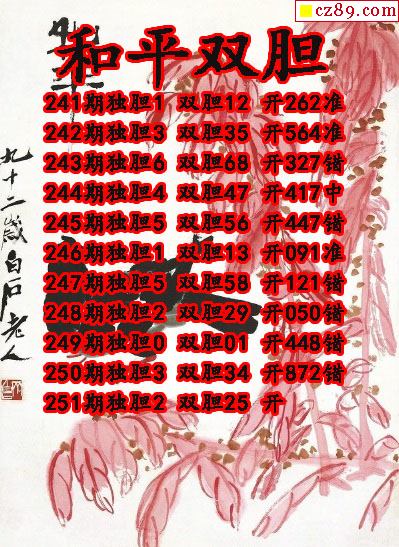 cz89.com
和平双胆
241期独胆1 双胆12 开262准
242期独胆3 双胆35 开564准
243期独胆6 双胆68 开327错
244期独胆4 双胆47 开417中
245期独胆5 双胆56 开447错
246期独胆1 双胆13 开091准
247期独胆5 双胆58 开121错
248期独胆2 双胆29 开050错
249期独胆0 双胆01 开448错
250期独胆3 双胆34 开872错
251期独胆2 双胆25 开
九十二岁白石老人